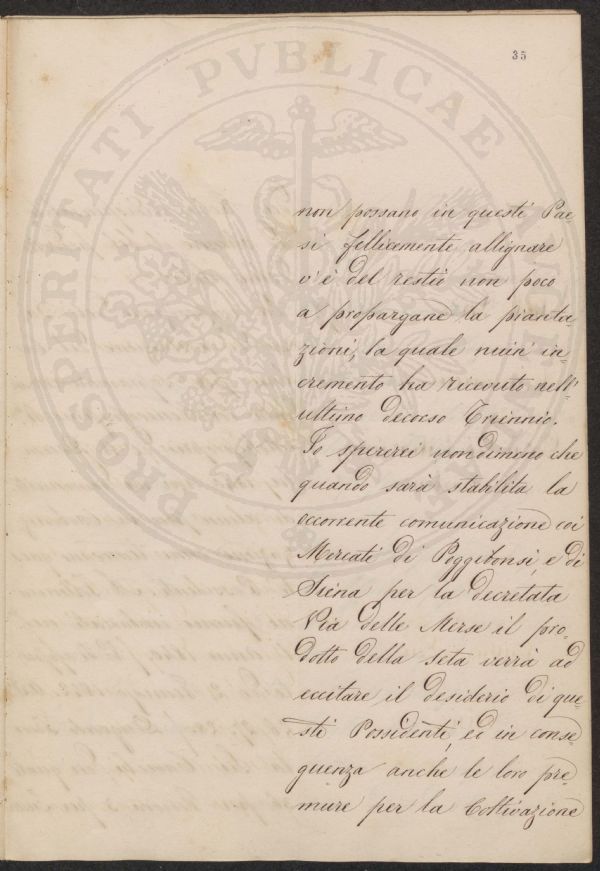 35
non possano in questi Pae-
si fellicemente allignare
v'è del resto non poco
a propargane la pianta-
zioni, la quale niun in-
cremento ha ricevuto nell'
ultimo decorso Triennio.
Io spererei nondimeno che
quando sarà stabilita la
occorrente comunicazione coi
Mercati di Poggibonsi, e di
Siena per la decretata
Via delle Merse il pro-
dotto della seta verrà ad
eccitare il desiderio di que-
sti Possidenti, ed in conse-
guenza anche le loro pre-
mure per la Coltivazione
PROSPERITATI PVBLICAE